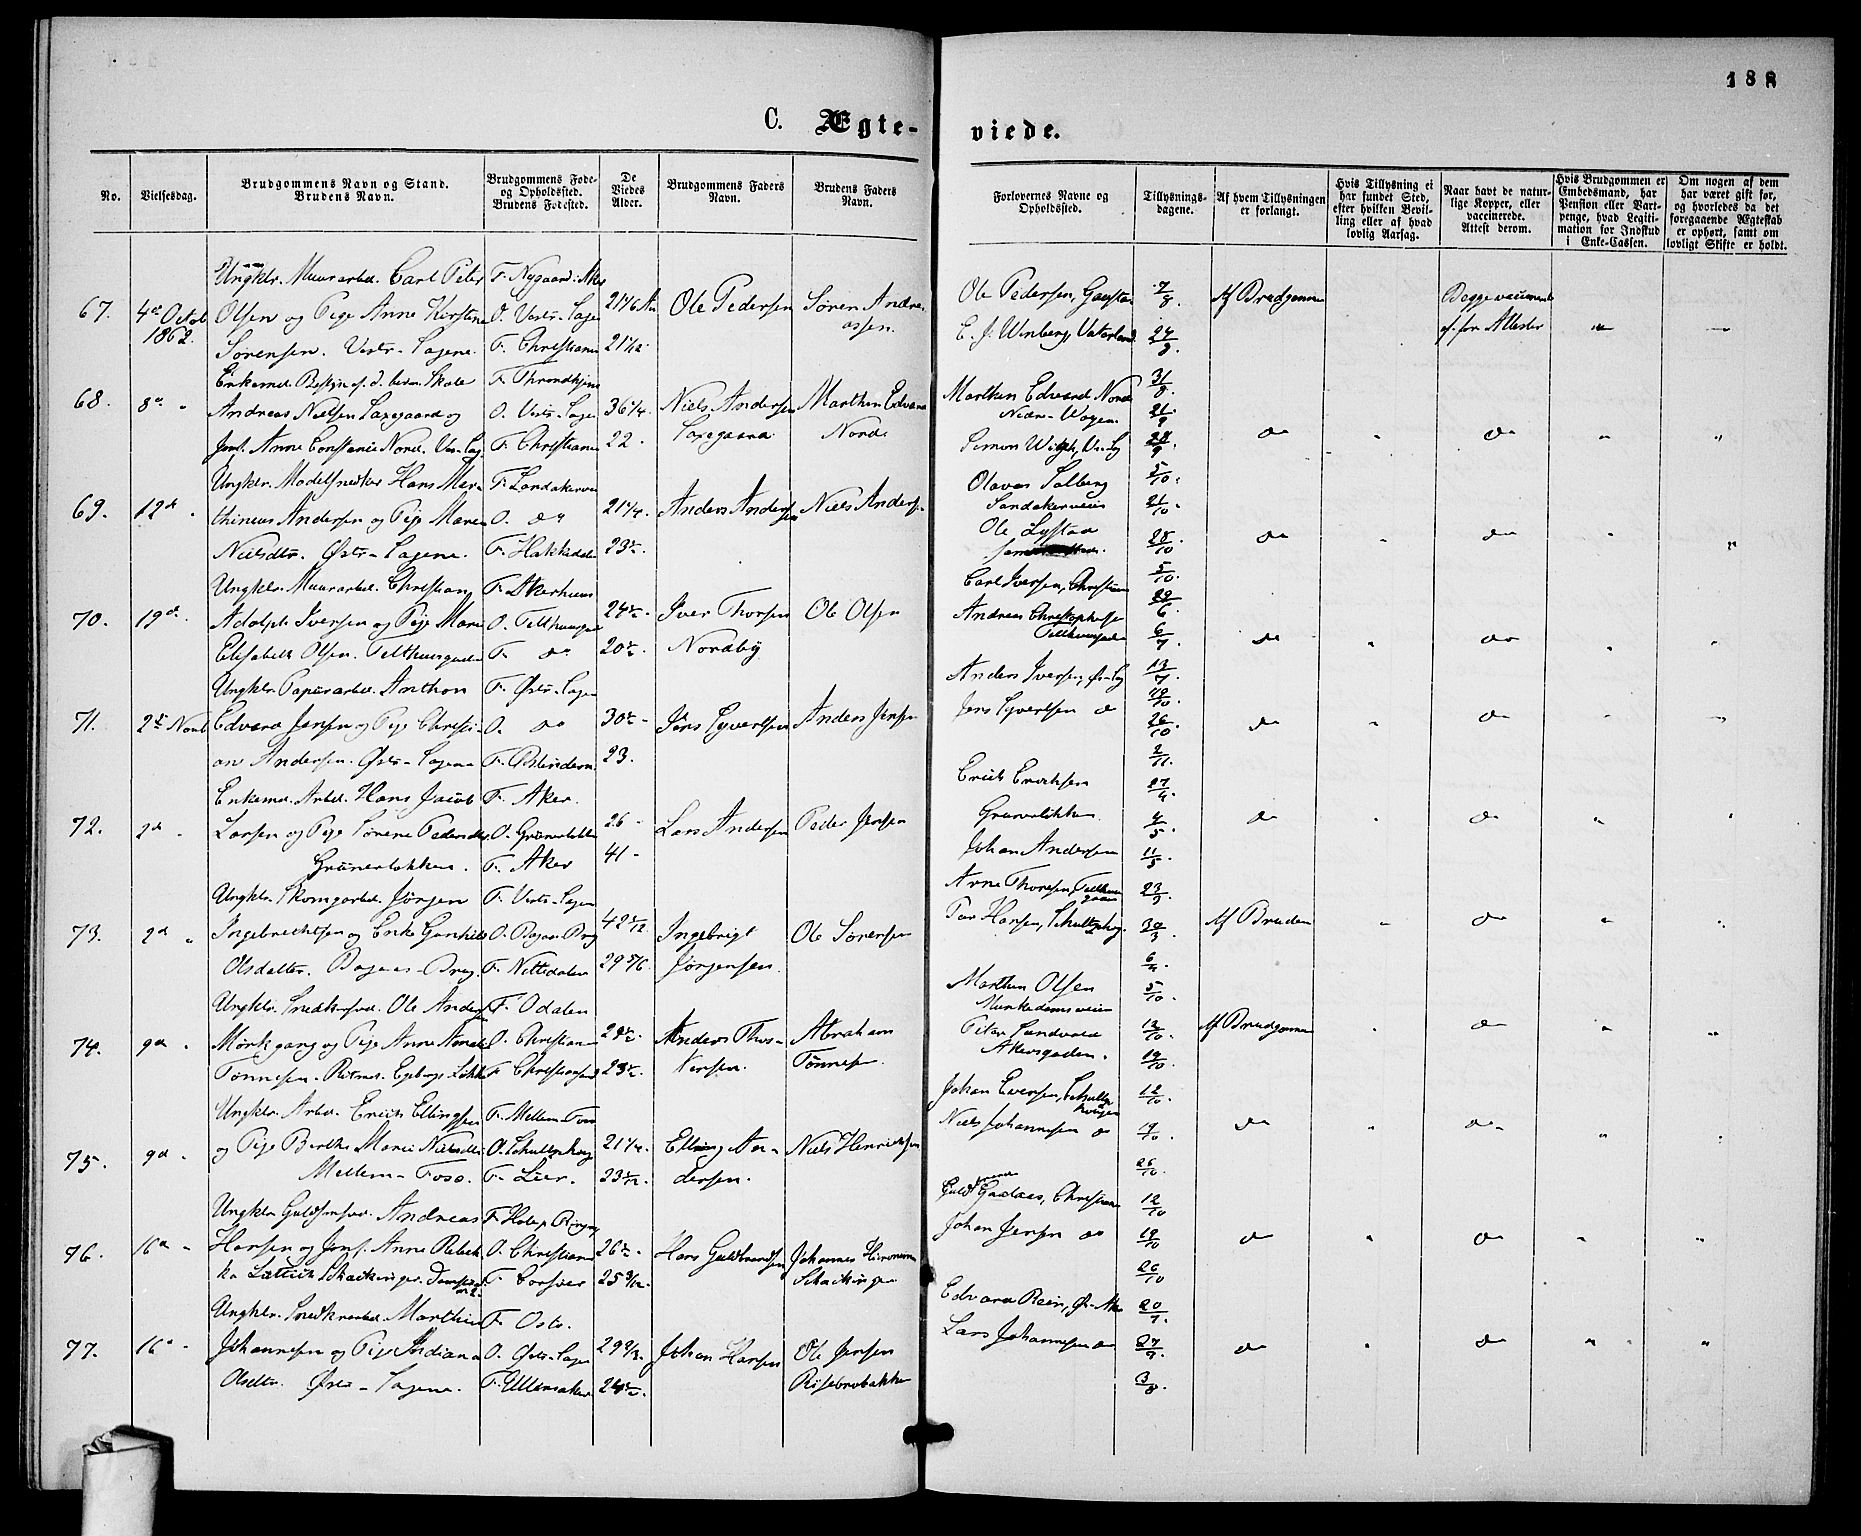 188
C. Ægte-
viede.
No.
Vielsesdag.
Brudgommens Navn og Stand.
Brudens Navn.
Brudgommens Føde-
og Opholdssted.
Brudens Fødested.
De
Viedes
Alder.
Brudgommens Faders
Navn.
Brudens Faders
Navn.
Forlovernes Navne og
Opholdssted.
Tillysnings-
dagene.
Af hvem Tillysningen
er forlangt.
Hvis Tillysning ei
har fundet Sted,
efter hvilken Bevil-
ling eller af hvad
lovlig Aarsag.
Naar havt de natur-
lige Kopper, eller
vaccinerede.
Attest derom.
Hvis Brudgommen er
Embedsmand, har
Pension eller Vart-
penge, hvad Legiti-
mation for Indskud
i Enke-Cassen.
Om nogen af dem
har været gift før,
og hvorledes da det
foregaaende Ægteskab
er ophørt, samt om
lovligt Skifte er holdt.
67.
4de Octob
1862.
Ungklr. Muurarbd. Carl Peter
Olsen og Pige Anne Kirstine
Sørensen. Vestr-Sagene.
F. Nygaard i Aker
O. Vestr-Sagen
F. Christiania
Ole Pedersen
Søren Andre-
assen.
Ole Pedersen, Gaustad
E. J. Winberg, Vaterland
7/8.
24/8.
31/8.
Af Brudgommen
Begge vaccinerede
68.
8de
Andreas Nielsen Saxegaard og
Jomf. Anne Constance Nord. Ves-Sag
F. Throndhjem
O. Vestr-Sagen
F. Christiania
36 1/4.
22.
Niels Andersen
Saxegaard
Marthen Edvard
Nord
Marthen Edvard Nord
Simon Wigh, Ve-Sg
21/9
28/9.
do
do
69.
12de
Ungklr. Modelsnedker Hans Mar-
thineus Andersen og Pige Maren
Nielsdtr. Østr-Sagene.
F. Sandakerveien
O. do
F. Hakkedalen
21 1/4.
23 1/2.
Anders Andersen
Niels Anders.
Olavas Solberg
Sandakerveien
Ole Lystad
5/10.
21/10.
28/10
do
do
70.
19de
Ungklr. Muurarbd. Christian
Adolph Iversen og Pige Maren
Elisabeth Olsen. Telthuusgaden
F. Akershuus
O. Telthuusgad
F. do
24 1/2.
20 1/2.
Iver Thorsen
Nordby
Ole Olsen
Carl Iversen, Christiania
Andreas Christophersen
Telthuusgaden
29/6
6/7
13/7.
do
do
71.
2de Novb
Ungklr. Papirarbd. Anthon
Edvard Jensen og Pige Christi-
ane Andersen. Østr-Sagene
F. Østr-Sagen
O. do
F. Blindern
30 1/2
23.
Jens Eyvertsen
Anders Jensen
Anders Iversen, Ø-Sg
Jens Eyvertsen do
19/10.
26/10
2/11.
do
do
72.
2de
Enkemd. Arbd. Hans Jacob
Larsen og Pige Sørene Pedersdtr.
Grünerløkken.
F. Aker.
O. Grünerløkken
F. Aker
26
41
Lars Andersen
Peder Jensen
Erich Erichsen
Grünerløkken.
Johan Andersen
27/4
4/5.
11/5.
do
do
73.
2de
Ungklr. Skomagarbd. Jørgen
Ingebrechtsen og Enke Gunhild
Olsdatter. Bagaas-Brug.
F. Vestr-Sagen
O. Bagaas Brug
F. Nittedalen
29 5/6.
Ingebrigt
Jørgensen.
Ole Sørensen
Arne Thoresen, Telthuusgaden
Tar Hansen, Schultzehoug.
23/3
30/3.
6/4.
Af Bruden
do
74.
9de
Ungklr. Snedkersvd. Ole Andersen
Mørkgang og Pige Anne Amalie
Tønnesen. Ritmd. Egebergs Løkke
F. Odalen
O. Christiania
F. Christiansand
23 1/2.
Anders Thor-
kersen.
Abraham
Tønnesen
Marthin Olsen
Munkedamsveien
Peter Sandvold
Akersgaden.
5/10.
12/10.
19/10.
Af Brudgommen
do
75.
9de
Ungklr. Arbd. Erich Ellingsen
og Pige Berthe Marie Nielsdtr.
Mellem-Foss.
F. Mellem Foss
O. Schultzehoug
F. Lier.
21 1/4.
Elling An-
dersen.
Niels Henriksen
Johan Eversen, Schultze-
hougen
Niels Johannesen do
12/10.
19/10.
26/10
do
do
76.
16de
Ungklr. Guldsmsvd. Andreas
Hansen og Jomf. Anne Rebek-
ka
F. Hole p. Ringer.
O. Christiania
26 1/2.
25 3/12.
Hans Guldbrandsen
Johannes Hieronimus
Gadaas, Christiania
Johan Jensen do
12/10
19/10
26/10
do
do
77.
16de
Ungklr. Snedkerarbd. Marthin
Johannesen og Pige Indiana
Olsdtr. Østr-Sagene.
F. Oslo.
O. Østr-Sagen
F. Ullensaker
Johan Hansen
Ole Jensen
Risebrobakken
Edvard Rein, Ø-Aker
Lars Johannesen do
20/7.
27/7.
3/8.
do
do